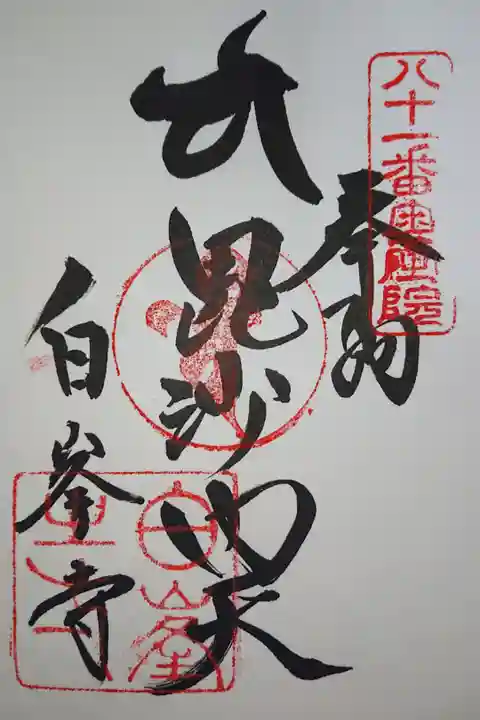 八十一番
奉納
大毘沙門天
白峯寺
白峯